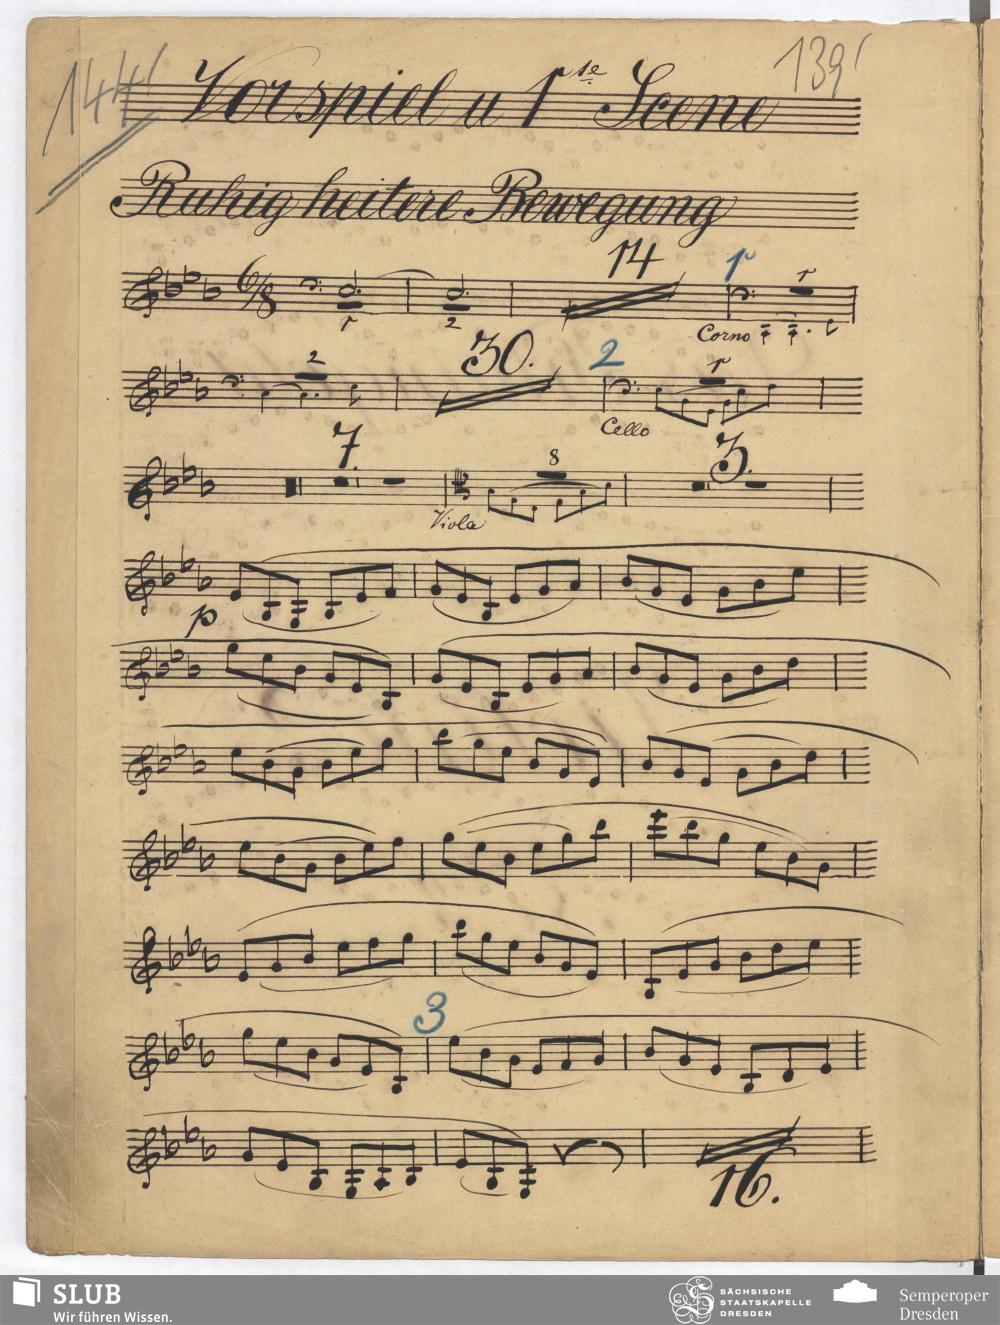 144
139
Vorspiel u 1ste Scene
Ruhig heitere Bewegung
6/8
1
2
14
1
1
Corno
2
30.
2
1
Cello
7.
8
3.
Viola
p
3
16.
SLUB
Wir führen Wissen.
SÄCHSISCHE
STAATSKAPELLE
DRESDEN
Semperoper
Dresden